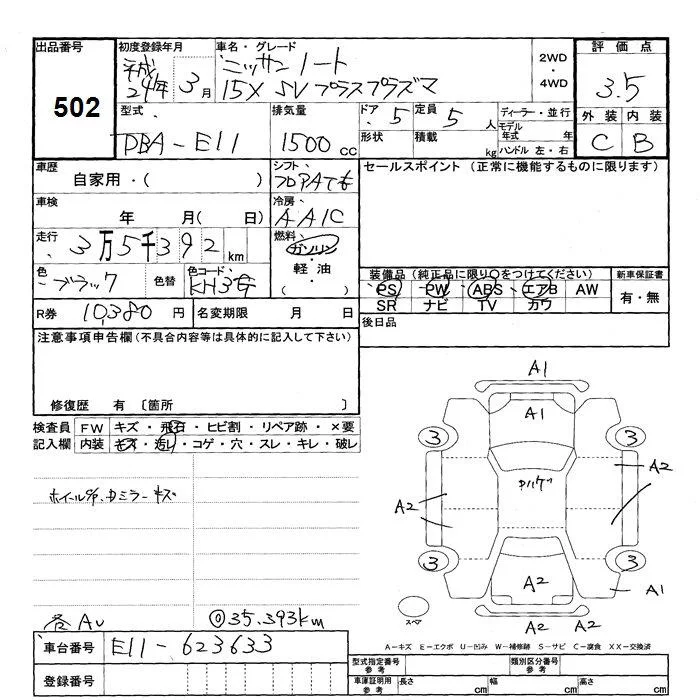 出品番号 初度登録年月 車名・グレード 2WD・4WD 評価点
502 平成24年3月 ニッサン ノート 3.5
15X SV プラスプラズマ
型式 排気量 ドア 定員 ディーラー・並行 外装 内装
DBA-E11 1500cc 5 5人 モデル年式 年 C B
形状 積載 kg ハンドル 左・右
車歴 シフト セールスポイント (正常に機能するものに限ります)
自家用・( )
車検 冷房
年 月( 日) AAIC
走行 燃料
3万5千392km ガソリン・軽油・( )
色 色替 色コード 装備品 (純正品に限り○をつけてください) 新車保証書
ブラック KH3 PS PW ABS エアB AW 有・無
SR ナビ TV カワ
R券 10,380円 名変期限 月 日 後日品
注意事項申告欄(不具合内容等は具体的に記入して下さい)
修復歴 有 〔箇所 〕
検査員 FW キズ・飛石・ヒビ割・リペア跡・×要
記入欄 内装 キズ・汚レ・コゲ・穴・スレ・キレ・破レ
ホイール ミラーキズ
各AU ◎35.393km
A1
A1
3 3
A2
A2
3 3
A2 A1
スペア
A2 A2
A-キズ E-エクボ U-凹み W-補修跡 S-サビ C-腐食 XX-交換済
車台番号 E11-623633
登録番号
型式指定番号 参考 類別区分番号 参考
車庫証明用 参考 長さ cm 幅 cm 高さ cm